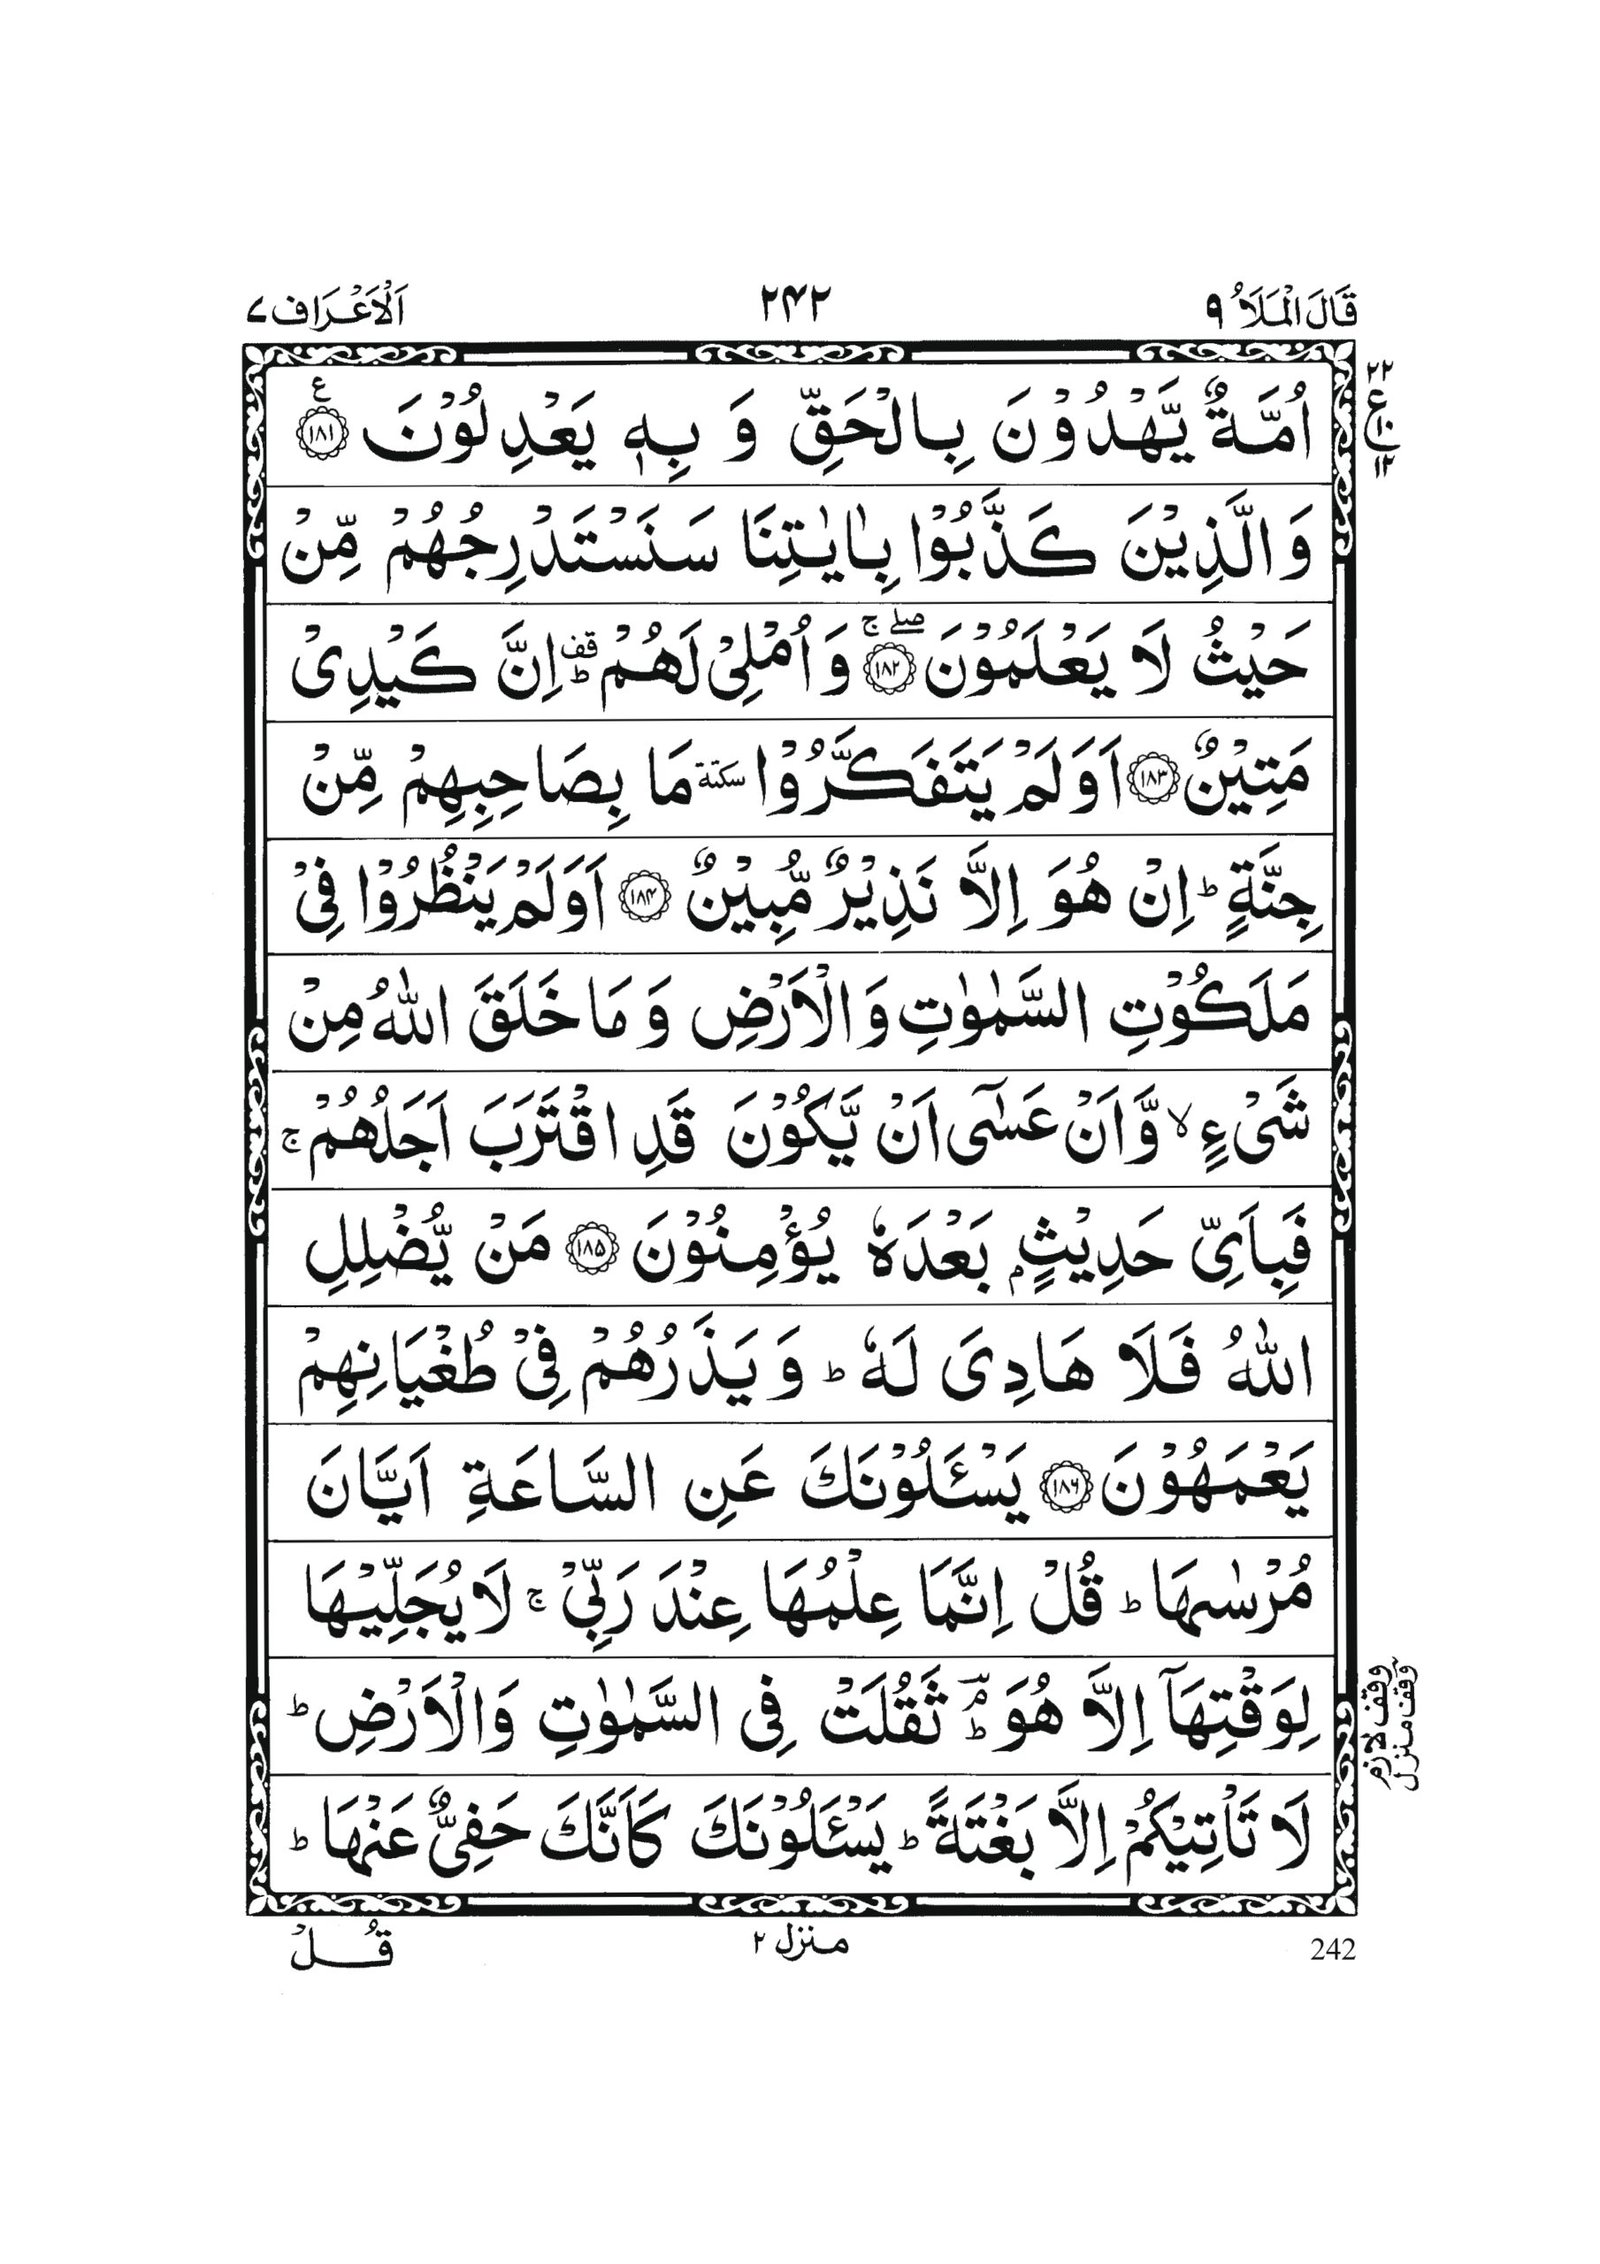 قَالَ الْمَلَاُ ٩
٢٤٢
اَلْاَعْرَاف ٧
اُمَّةٌ يَّهْدُوْنَ بِالْحَقِّ وَ بِهٖ يَعْدِلُوْنَ ؏ ﴿١٨١﴾
٢٢ ع ١٢
وَ الَّذِيْنَ كَذَّبُوْا بِاٰيٰتِنَا سَنَسْتَدْرِجُهُمْ مِّنْ
حَيْثُ لَا يَعْلَمُوْنَ ﴿١٨٢﴾ صلے ج وَ اُمْلِيْ لَهُمْ قف ط اِنَّ كَيْدِيْ
مَتِيْنٌ ﴿١٨٣﴾ اَوَلَمْ يَتَفَكَّرُوْا سكتة مَا بِصَاحِبِهِمْ مِّنْ
جِنَّةٍ ط اِنْ هُوَ اِلَّا نَذِيْرٌ مُّبِيْنٌ ﴿١٨٤﴾ اَوَلَمْ يَنْظُرُوْا فِيْ
مَلَكُوْتِ السَّمٰوٰتِ وَ الْاَرْضِ وَ مَا خَلَقَ اللّٰهُ مِنْ
شَيْءٍ لا وَّ اَنْ عَسٰٓى اَنْ يَّكُوْنَ قَدِ اقْتَرَبَ اَجَلُهُمْ ج
فَبِاَيِّ حَدِيْثٍۭ بَعْدَهٗ يُؤْمِنُوْنَ ﴿١٨٥﴾ مَنْ يُّضْلِلِ
اللّٰهُ فَلَا هَادِيَ لَهٗ ط وَ يَذَرُهُمْ فِيْ طُغْيَانِهِمْ
يَعْمَهُوْنَ ﴿١٨٦﴾ يَسْـَٔلُوْنَكَ عَنِ السَّاعَةِ اَيَّانَ
مُرْسٰىهَا ط قُلْ اِنَّمَا عِلْمُهَا عِنْدَ رَبِّيْ ج لَا يُجَلِّيْهَا
لِوَقْتِهَآ اِلَّا هُوَ م ط ثَقُلَتْ فِي السَّمٰوٰتِ وَ الْاَرْضِ ط
وقف لازم
وقف منزل
لَا تَاْتِيْكُمْ اِلَّا بَغْتَةً ط يَسْـَٔلُوْنَكَ كَاَنَّكَ حَفِيٌّ عَنْهَا ط
242
منزل ٢
قُلْ